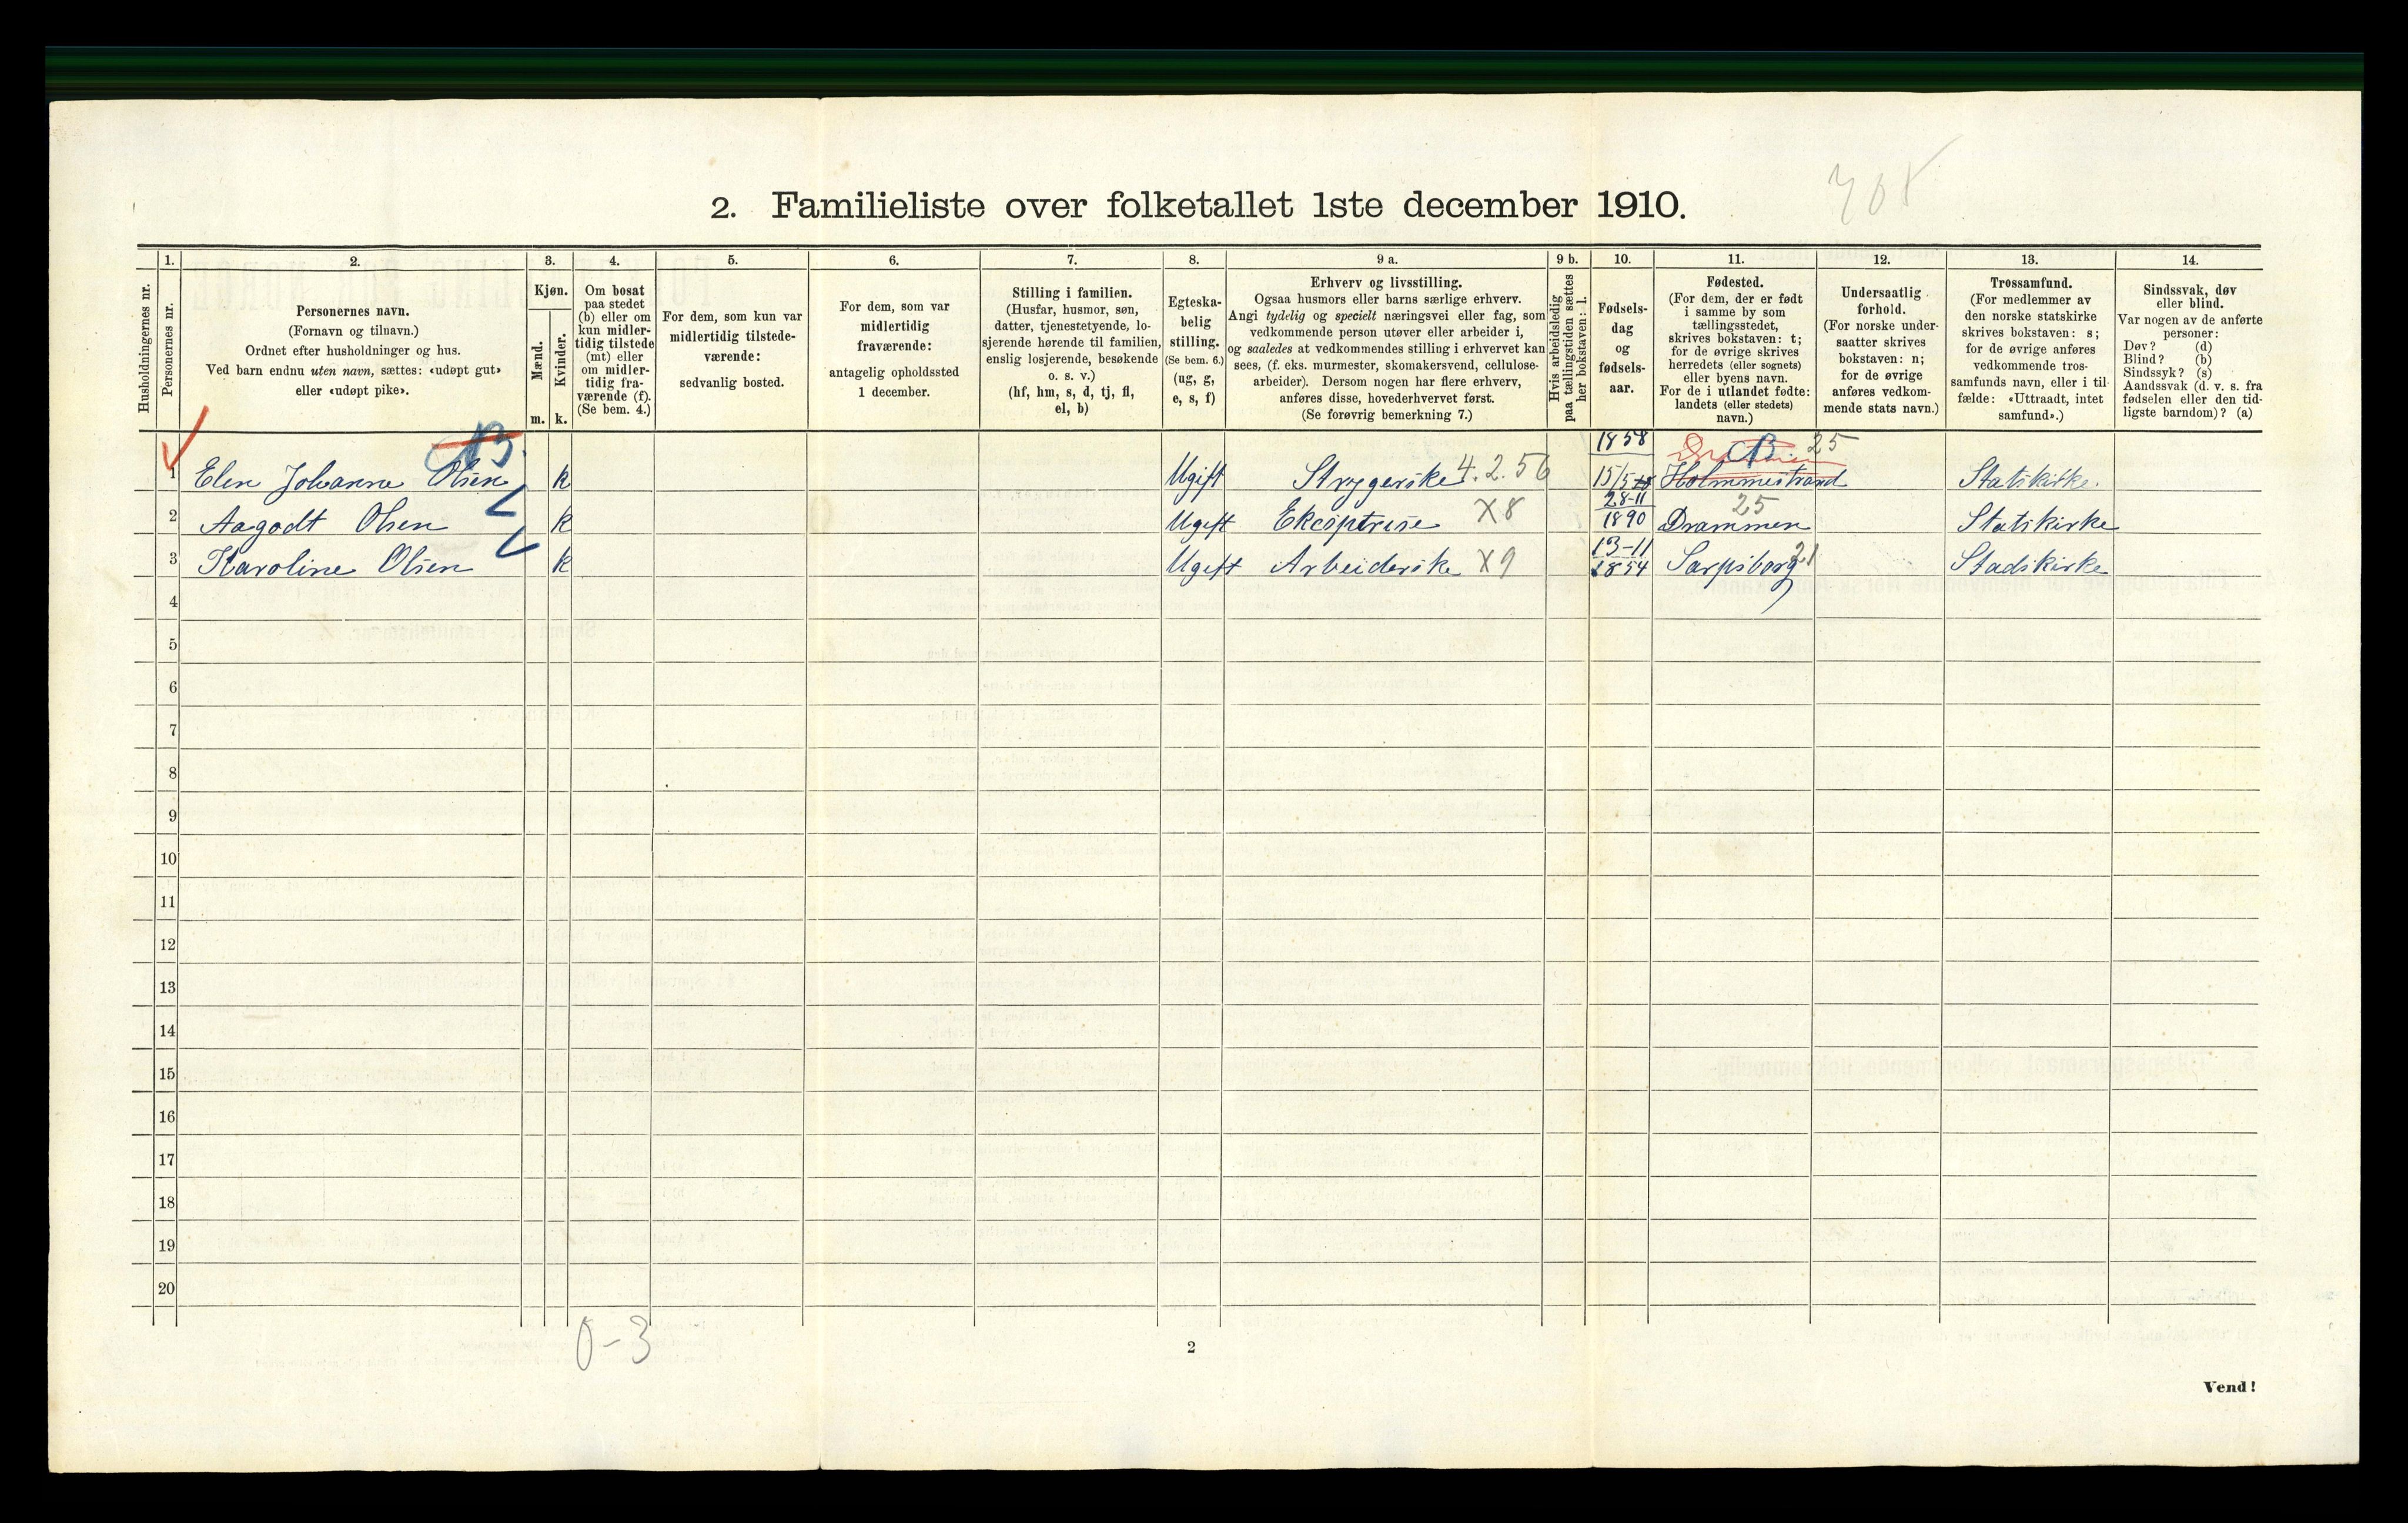 708
2. Familieliste over folketallet 1ste december 1910.
Husholdningernes nr.
1.
Personernes nr.
2.
Personernes navn.
(Fornavn og tilnavn.)
Ordnet efter husholdninger og hus.
Ved barn endnu uten navn, sættes: «udøpt gut»
eller «udøpt pike».
3.
Kjøn.
Mænd.
Kvinder.
m. k.
4.
Om bosat
paa stedet
(b) eller om
kun midler-
tidig tilstede
(mt) eller
om midler-
tidig fra-
værende (f).
(Se bem. 4.)
5.
For dem, som kun var
midlertidig tilstede-
værende:
sedvanlig bosted.
6.
For dem, som var
midlertidig
fraværende:
antagelig opholdssted
1 december.
7.
Stilling i familien.
(Husfar, husmor, søn,
datter, tjenestetyende, lo-
sjerende hørende til familien,
enslig losjerende, besøkende
o. s. v.)
(hf, hm, s, d, tj, fl,
el, b)
8.
Egteska-
belig
stilling.
(Se bem. 6.)
(ug, g,
e, s, f)
9 a.
Erhverv og livsstilling.
Ogsaa husmors eller barns særlige erhverv.
Angi tydelig og specielt næringsvei eller fag, som
vedkommende person utøver eller arbeider i,
og saaledes at vedkommendes stilling i erhvervet kan
sees, (f. eks. murmester, skomakersvend, cellulose-
arbeider). Dersom nogen har flere erhverv,
anføres disse, hovederhvervet først.
(Se forøvrig bemerkning 7.)
9 b.
Hvis arbeidsledig
paa tællingstiden sættes
her bokstaven: l.
10.
Fødsels-
dag
og
fødsels-
aar.
11.
Fødested.
(For dem, der er født
i samme by som
tællingsstedet,
skrives bokstaven: t;
for de øvrige skrives
herredets (eller sognets)
eller byens navn.
For de i utlandet fødte:
landets (eller stedets)
navn.)
12.
Undersaatlig
forhold.
(For norske under-
saatter skrives
bokstaven: n;
for de øvrige
anføres vedkom-
mende stats navn.)
13.
Trossamfund.
(For medlemmer av
den norske statskirke
skrives bokstaven: s;
for de øvrige anføres
vedkommende tros-
samfunds navn, eller i til-
fælde: «Uttraadt, intet
samfund».)
14.
Sindssvak, døv
eller blind.
Var nogen av de anførte
personer:
Døv? (d)
Blind? (b)
Sindssyk? (s)
Aandssvak (d. v. s. fra
fødselen eller den tid-
ligste barndom)? (a)
B. 1858 B 25
1 Elen Johanne Olsen k Ugift Strygerske 4.2.56 15/5 Holmmestrand Statskirke.
28-11 25
2 Aagodt Olsen k Ugift Ekspetrise X8 1890 Drammen Statskirke
13-11 21
3 Karoline Olsen k Ugift Arbeiderske X9 1854 Sarpsborg Stadskirke
4
5
6
7
8
9
10
11
12
13
14
15
16
17
18
19
20
0-3
2
Vend!